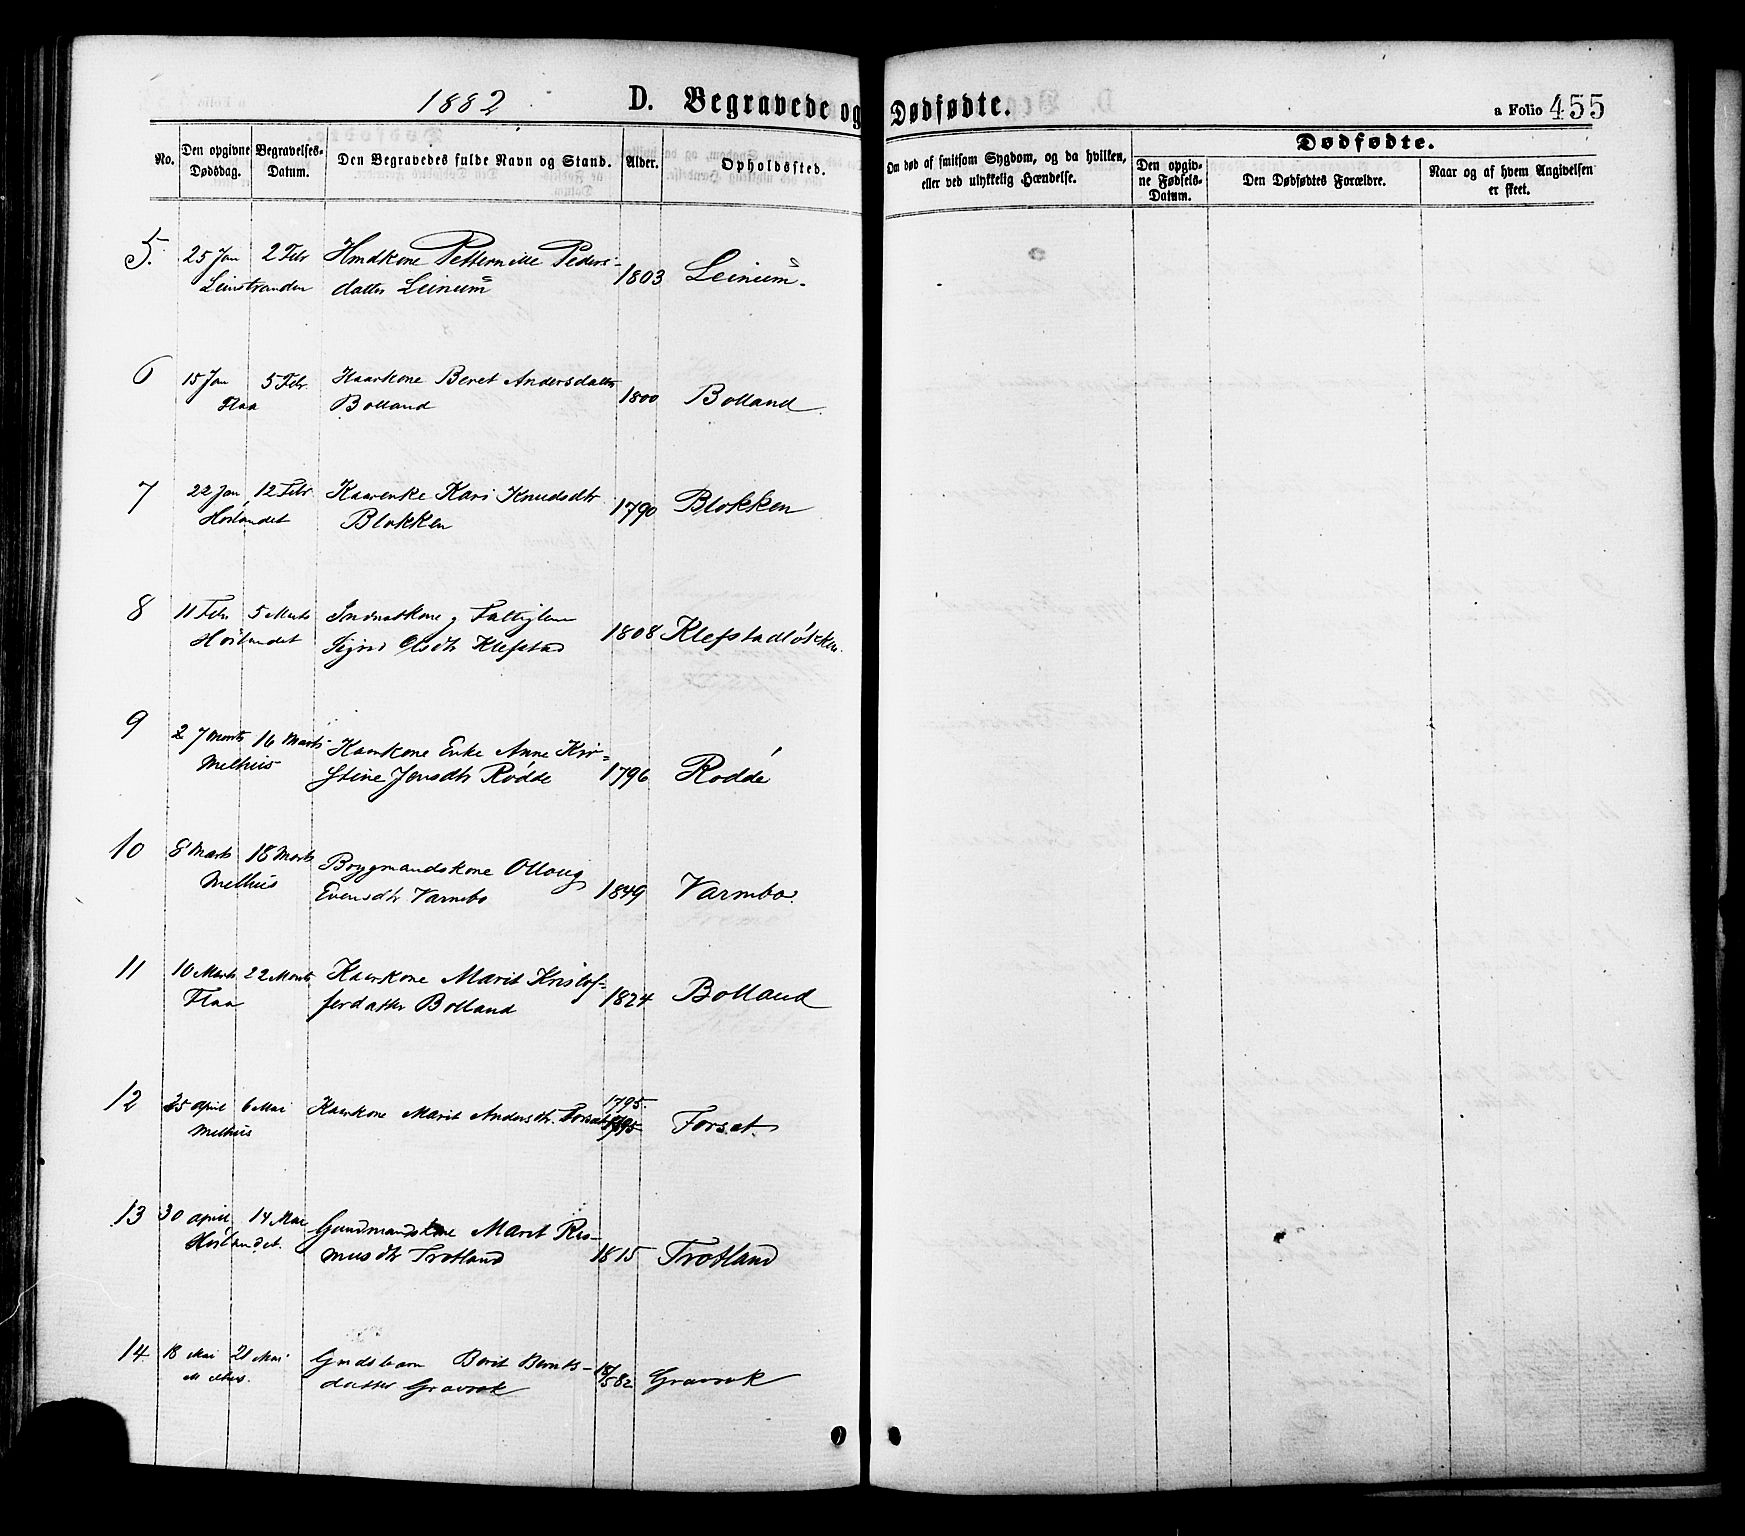 1882 D. Begravede og Dødfødte. a Folio 455
No. Den opgivne Dødsdag. Begravelses-Datum. Den Begravedes fulde Navn og Stand. Alder. Opholdssted. Om død af smitsom Sygdom, og da hvilken, eller ved ulykkelig Hændelse. Dødfødte. Den opgivne Fødsels-Datum. Den Dødfødtes Forældre. Naar og af hvem Angivelsen er skeet.
5. 25 Jan 2 Febr Hmdkone Petternille Peders-
Leinstranden datter Leinum 1803 Leinum.
6 15 Jan 5 Febr. Kaarkone Beret Andersdatter
Flaa Bolland 1800 Bolland
7 22 Jan 12 Febr Kaarenke Kari Knudsdtr
Høilandet Blokken 1790 Blokken
8 11 Febr 5 Marts Indrætkone Fattiglem
Høilandet Sigrid Olsdtr Klefstad 1808 Klefstadløkken.
9 2 7 Marts 16 Marts Kaarkone Enke Anne Kir-
Melhus stine Jonsdtr Rødde 1796 Rødde
10 8 Marts 18 Marts Bygmandskone Ollaug
Melhus Evensdtr Varmbo 1849 Varmbo.
11 10 Marts 22 Marts Kaarkone Marit Kristof-
Flaa ferdatter Bolland 1824 Bolland
12 25 April 6 Mai Kaarkone Marit Andersdtr. Forsat 1795. 1795 Forsat
Melhus
13 30 April 14 Mai Gaardmandskone Marit Ras-
Høilandet. musdtr Trotland 1815 Trotland
14. 18 Mai 21 Mai Grdsbarn Berit Bernts-
Melhus. datter Gravrok 18/5 82 Gravrok